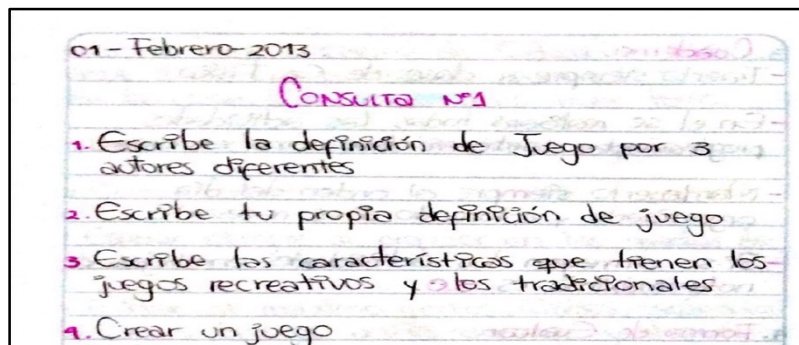 01-Febrero-2013
CONSULTA Nº1
1. Escribe la definición de Juego por 3
autores diferentes
2. Escribe tu propia definición de juego
3 Escribe las características que tienen los
juegos recreativos y los tradicionales
4. Crear un juego